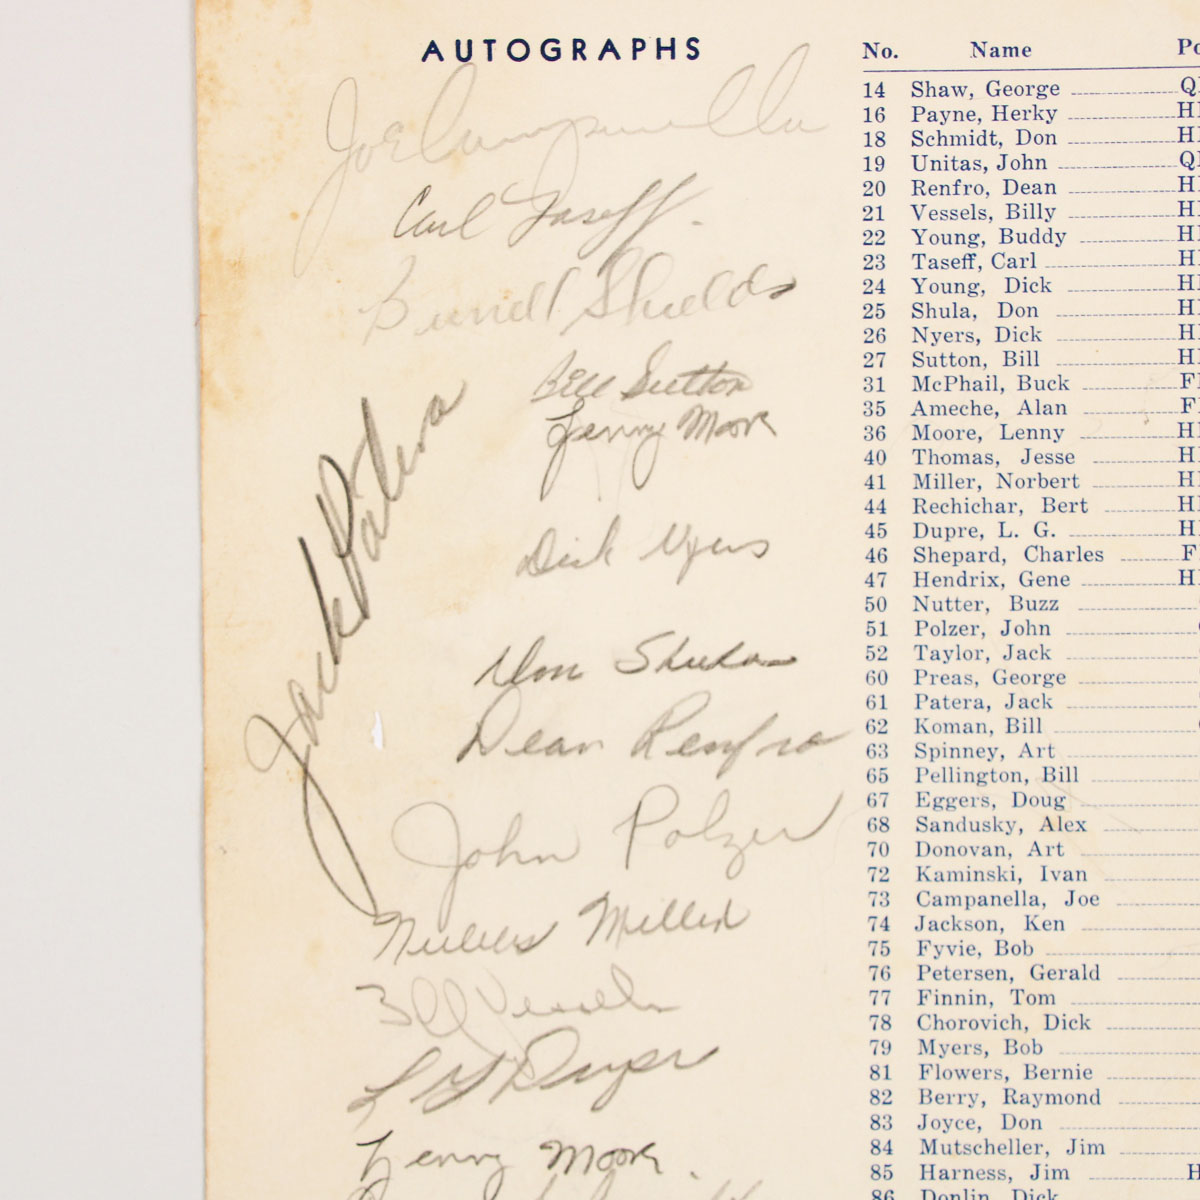 AUTOGRAPHS
Joe Campanella
Carl Taseff.
Burrell Shields
Bill Sutton
Lenny Moore
Jack Patera
Dick Nyers
Don Shula
Dean Renfro
John Polzer
Miller
Billy Vessels
L G Dupre
Lenny Moore.
No. Name
14 Shaw, George
16 Payne, Herky
18 Schmidt, Don
19 Unitas, John
20 Renfro, Dean
21 Vessels, Billy
22 Young, Buddy
23 Taseff, Carl
24 Young, Dick
25 Shula, Don
26 Nyers, Dick
27 Sutton, Bill
31 McPhail, Buck
35 Ameche, Alan
36 Moore, Lenny
40 Thomas, Jesse
41 Miller, Norbert
44 Rechichar, Bert
45 Dupre, L. G.
46 Shepard, Charles
47 Hendrix, Gene
50 Nutter, Buzz
51 Polzer, John
52 Taylor, Jack
60 Preas, George
61 Patera, Jack
62 Koman, Bill
63 Spinney, Art
65 Pellington, Bill
67 Eggers, Doug
68 Sandusky, Alex
70 Donovan, Art
72 Kaminski, Ivan
73 Campanella, Joe
74 Jackson, Ken
75 Fyvie, Bob
76 Petersen, Gerald
77 Finnin, Tom
78 Chorovich, Dick
79 Myers, Bob
81 Flowers, Bernie
82 Berry, Raymond
83 Joyce, Don
84 Mutscheller, Jim
85 Harness, Jim
86 Donlin, Dick